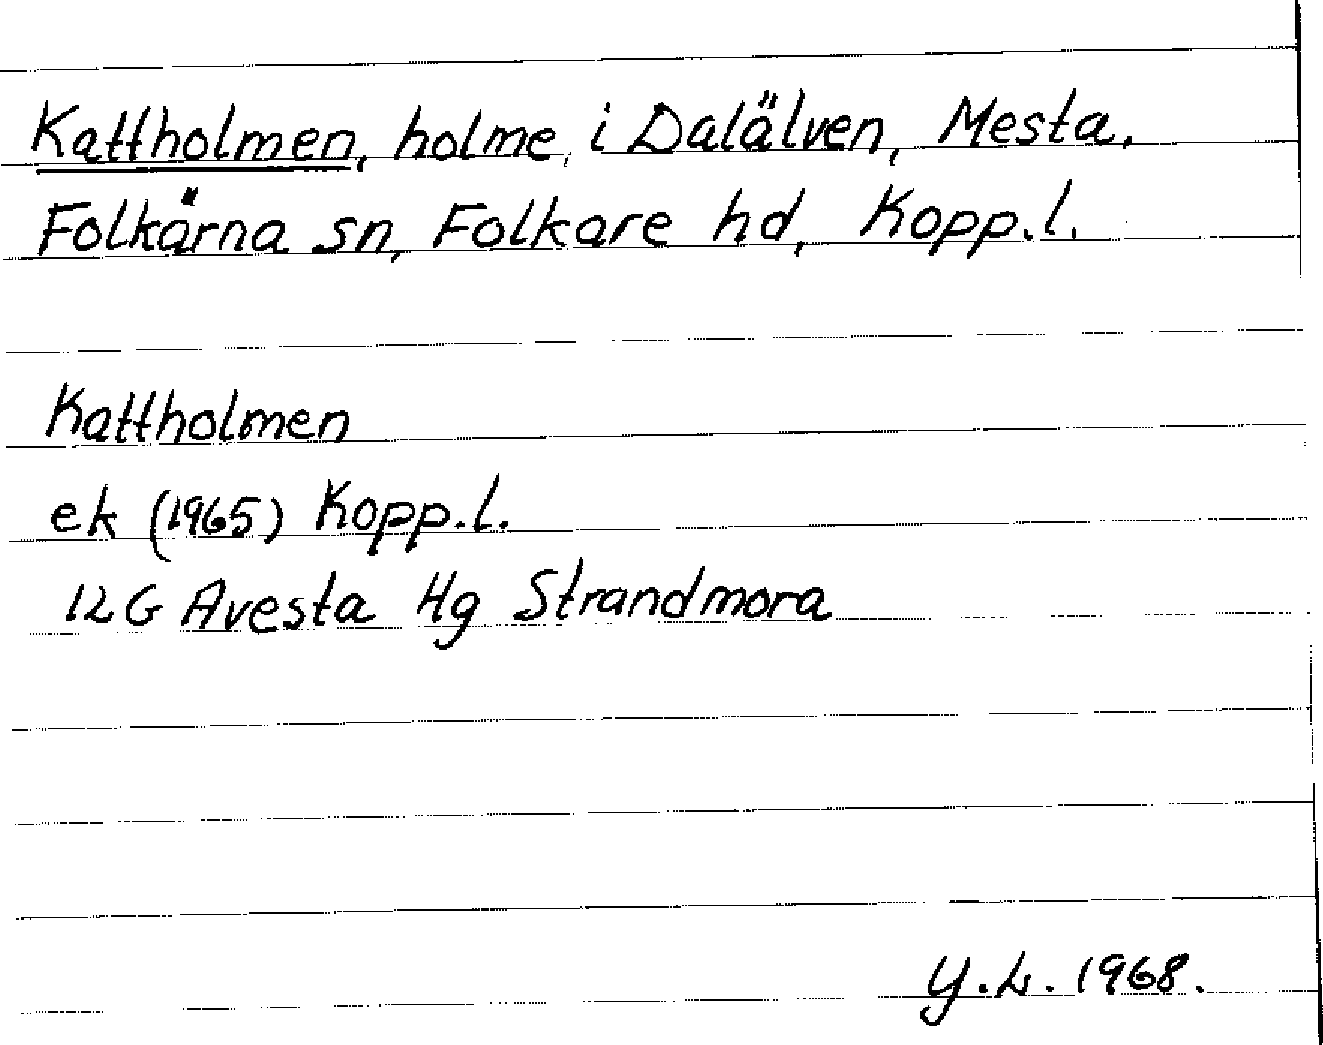 Kattholmen, holme, i Dalälven, Mesta,
Folkärna sn, Folkare hd, Kopp.l.
Kattholmen
ek (1965) Kopp.l.
12G Avesta Hg Strandmora
Y.L. 1968.